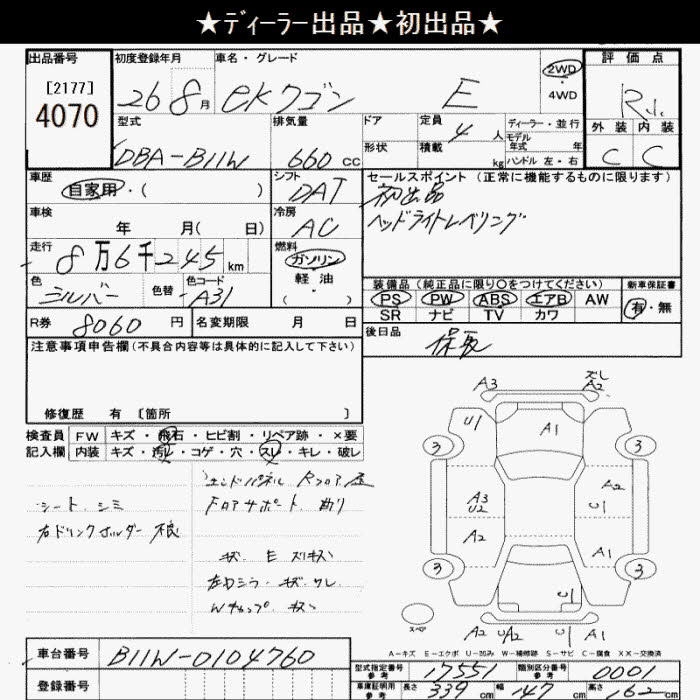 ★ディーラー出品★初出品★
出品番号 初度登録年月 車名・グレード 評価点
[2177]
4070
26 8月 eKワゴン E 2WD
4WD
型式 排気量 ドア 定員 4人 ディーラー・並行
モデル年式 年
外装 内装
DBA-B11W 660cc 形状 積載 kg ハンドル 左・右 C C
車歴 シフト セールスポイント (正常に機能するものに限ります)
自家用・( ) DAT 初出品
車検 冷房 ヘッドライトレベリング
年 月( 日) AC
走行 燃料
8万6千245km ガソリン
軽油
・( )
色 色替 色コード
シルバー A31
装備品 (純正品に限り○をつけてください) 新車保証書
PS PW ABS エアB AW 有・無
SR ナビ TV カワ
R券 8060円 名変期限 月 日 後日品
注意事項申告欄 (不具合内容等は具体的に記入して下さい)
修復歴 有 〔箇所 〕
検査員 FW キズ・飛石・ヒビ割・リペア跡・×要
記入欄 内装 キズ・汚レ・コゲ・穴・スレ・キレ・破レ
シート シミ
右ドリンクホルダー 不良
エンドパネル Rフロア
Fロアサポート 曲り
キズ
左ドアミラー キズ ワレ
Wキャップ キズ
A3 A2
U1 A1
3 3
A3 U2 A2 U1
A2 A1
3 3
U1
スペア
A2 U/A2 U1 A1
A-キズ E-エクボ U-凹み W-補修跡 S-サビ C-腐食 ××-交換済
車台番号 B11W-0104760
登録番号
型式指定番号 参考 17551 類別区分番号 参考 0001
車庫証明用 参考 長さ 339cm 幅 147cm 高さ 162cm